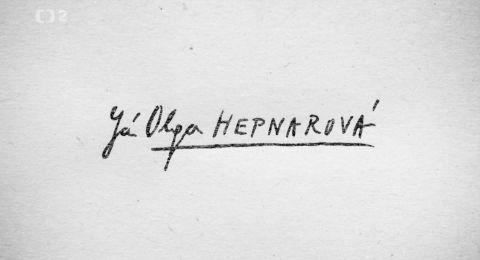 2
Já Olga HEPNAROVÁ